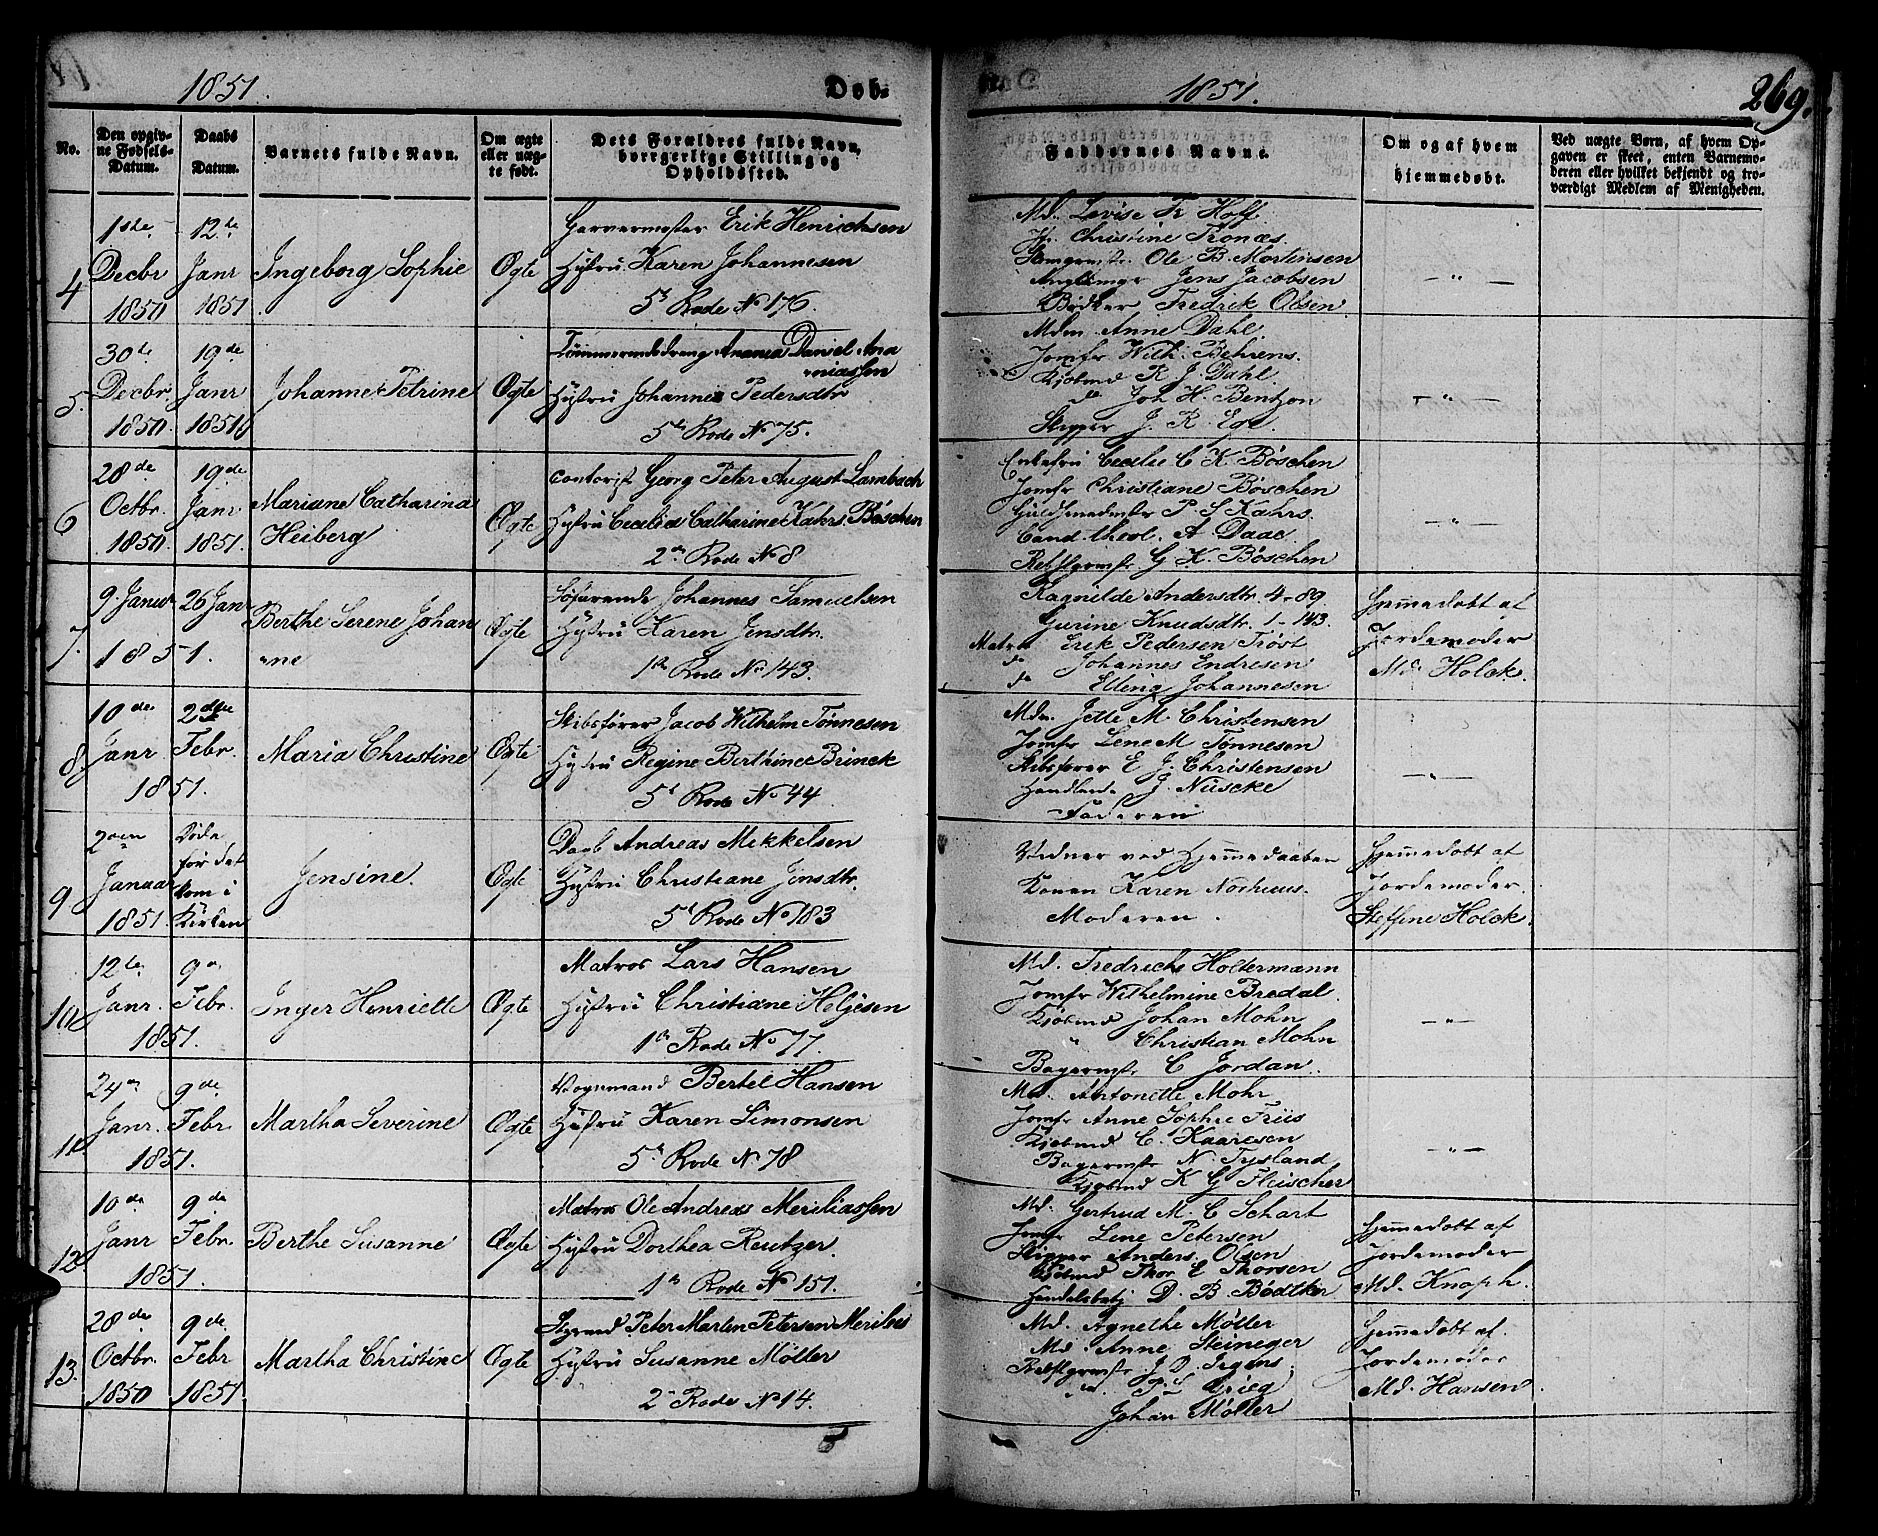 1851.
Døb-
1851.
269.
No.
Den opgiv-
ne Fødsels-
Datum.
Daabs
Datum.
Barnets fulde Navn.
Om ægte
eller uæg-
te født.
Dets Forældres fulde Navn,
borgerlige Stilling og
Opholdssted.
Faddernes Navne.
Om og af hvem
hjemmedøbt.
Ved uægte Børn, af hvem Op-
gaven er skeet, enten Barnemo-
deren eller hvilket bekjendt og tro-
værdigt Medlem af Menigheden.
4
1ste
Decbr
1850
12te
Janr
1851.
Ingeborg Sophie
Ægte
Garvermester Erik Henrichsen
Hustru Karen Johannesen
5t Rode No 176.
Md. Lovise Fr Hoff
Jfr. Christine Tronæs.
Ole B. Mortensen
Jens Jacobsen
Bødker Fredrik Olsen.
- " -
5.
30te
Decbr.
1850.
19de
Janr
1851
Johanne Petrine
Ægte
Tømmermandsdreng Ananias Daniel Ana
niassen
Hustru Johanne Pedersdtr
5te Rode No 75.
Mdm. Anne Dahl.
Jomfr Wilh. Behrens.
Kjøbmd R J. Dahl.
do Joh H. Bentzon
Skipper J. R. Ege.
- " -
6
28de
Octbr.
1850.
19de
Janr
1851.
Mariane Catharina
Heiberg
Ægte
Contorist Georg Peter August Lambach
Hustru Cecelia Catharine Kahrs Bøschen
2en Rode No 8
Enkefru Cecilie C. K. Bøschen
Jomfr Christiane Bøschen
Guldsmedmstr P. S Kahrs.
Cand. theol. A Daae.
Rebslgermstr G. K. Bøschen
- " -
7.
9. Januar
1851.
26 Janr
Berthe Serene Johan
ne
Ægte
Søfarende Johannes Samuelsen
Hustru Karen Jensdtr.
1te Rode No 143.
Ragnilde Andersdtr. 4-89
Gurine Knudsdtr. 1-143.
Matros Erik Pedersen Trøst
do Johannes Endresen
do Elling Johannesen
Hjemmedøbt af
Jordemoder
Md. Holck.
8.
10de
Janr
1851.
2den
Febr.
Maria Christine
Ægte
Skibsfører Jacob Wilhelm Tønnesen
Hustru Regine Berthinee Brinck
5t Rode No 44
Mdm. Jette M. Christensen
Jomfr Lene M Tønnesen
Skibsfører E J. Christensen
Handlende J. Nüscke
Faderen
- " -
9
2den
Januar
1851.
Døde
før det
kom i
Kirken
Jensine.
Ægte
Dagl Andreas Mikkelsen
Hustru Christiane Jensdtr.
5t Rode No 183
Vidner ved Hjemmedaaben
Konen Karen Norhuus.
Moderen.
Hjemmedøbt af
Jordemoder.
Steffine Holck.
10
12te
Janr.
1851.
9de
Febr.
Inger Henriette
Ægte
Matros Lars Hansen
Hustru Christiane Helgesen
1te Rode No 77.
Md. Fredriche Holtermann
Jomfr Wilhelmine Bredal.
Kjøbmd Johan Mohn
" Christian Mohn
Bagermstr C Jordan.
- " -
11
24de
Janr.
1851.
9de
Febr.
Martha Severine
Ægte
Vognmand Bertel Hansen
Hustru Karen Simonsen
5t Rode No 78
Md. Antonette Mohr
Jomfr Anne Sophie Friis
Kjøbmd C. Kaaresen
Bagermstr N. Tysland
Kjøbmd K G Fleischer
- " -
12
10de
Janr
1851.
9de
Febr.
Berthe Susanne
Ægte
Matros Ole Andreas Meriliassen
Hustru Dorthea Reutzer.
1te Rode No 151.
Md. Gertrud M. C Schart
Jomfr Lene Petersen
Skipper Anders. Olsen
Kjøbmd Thor E Thorsen
Handelsbetj D. B. Bødtker
Hjemmedøbt af
Jordemoder
Md. Knoph.
13.
28de
Octbr.
1850
9de
Febr
1851.
Martha Christine
Ægte
Styrmd Peter Martin Petersen Merilees
Hustru Susanne Møller
2n Rode No 14.
Md. Agnethe Møller
Md. Anne Steineger
Rebslgermstr. J D. Irgens.
do P L Grieg
Johan Møller
Hjemmedøbt af.
Jordemoder
Md. Hansen.